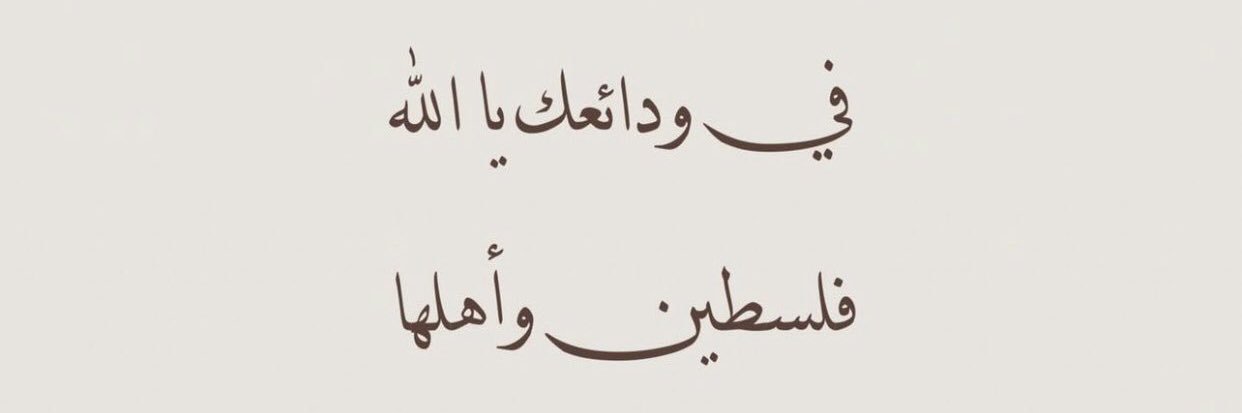 في ودائعك يا الله
فلسطين وأهلها